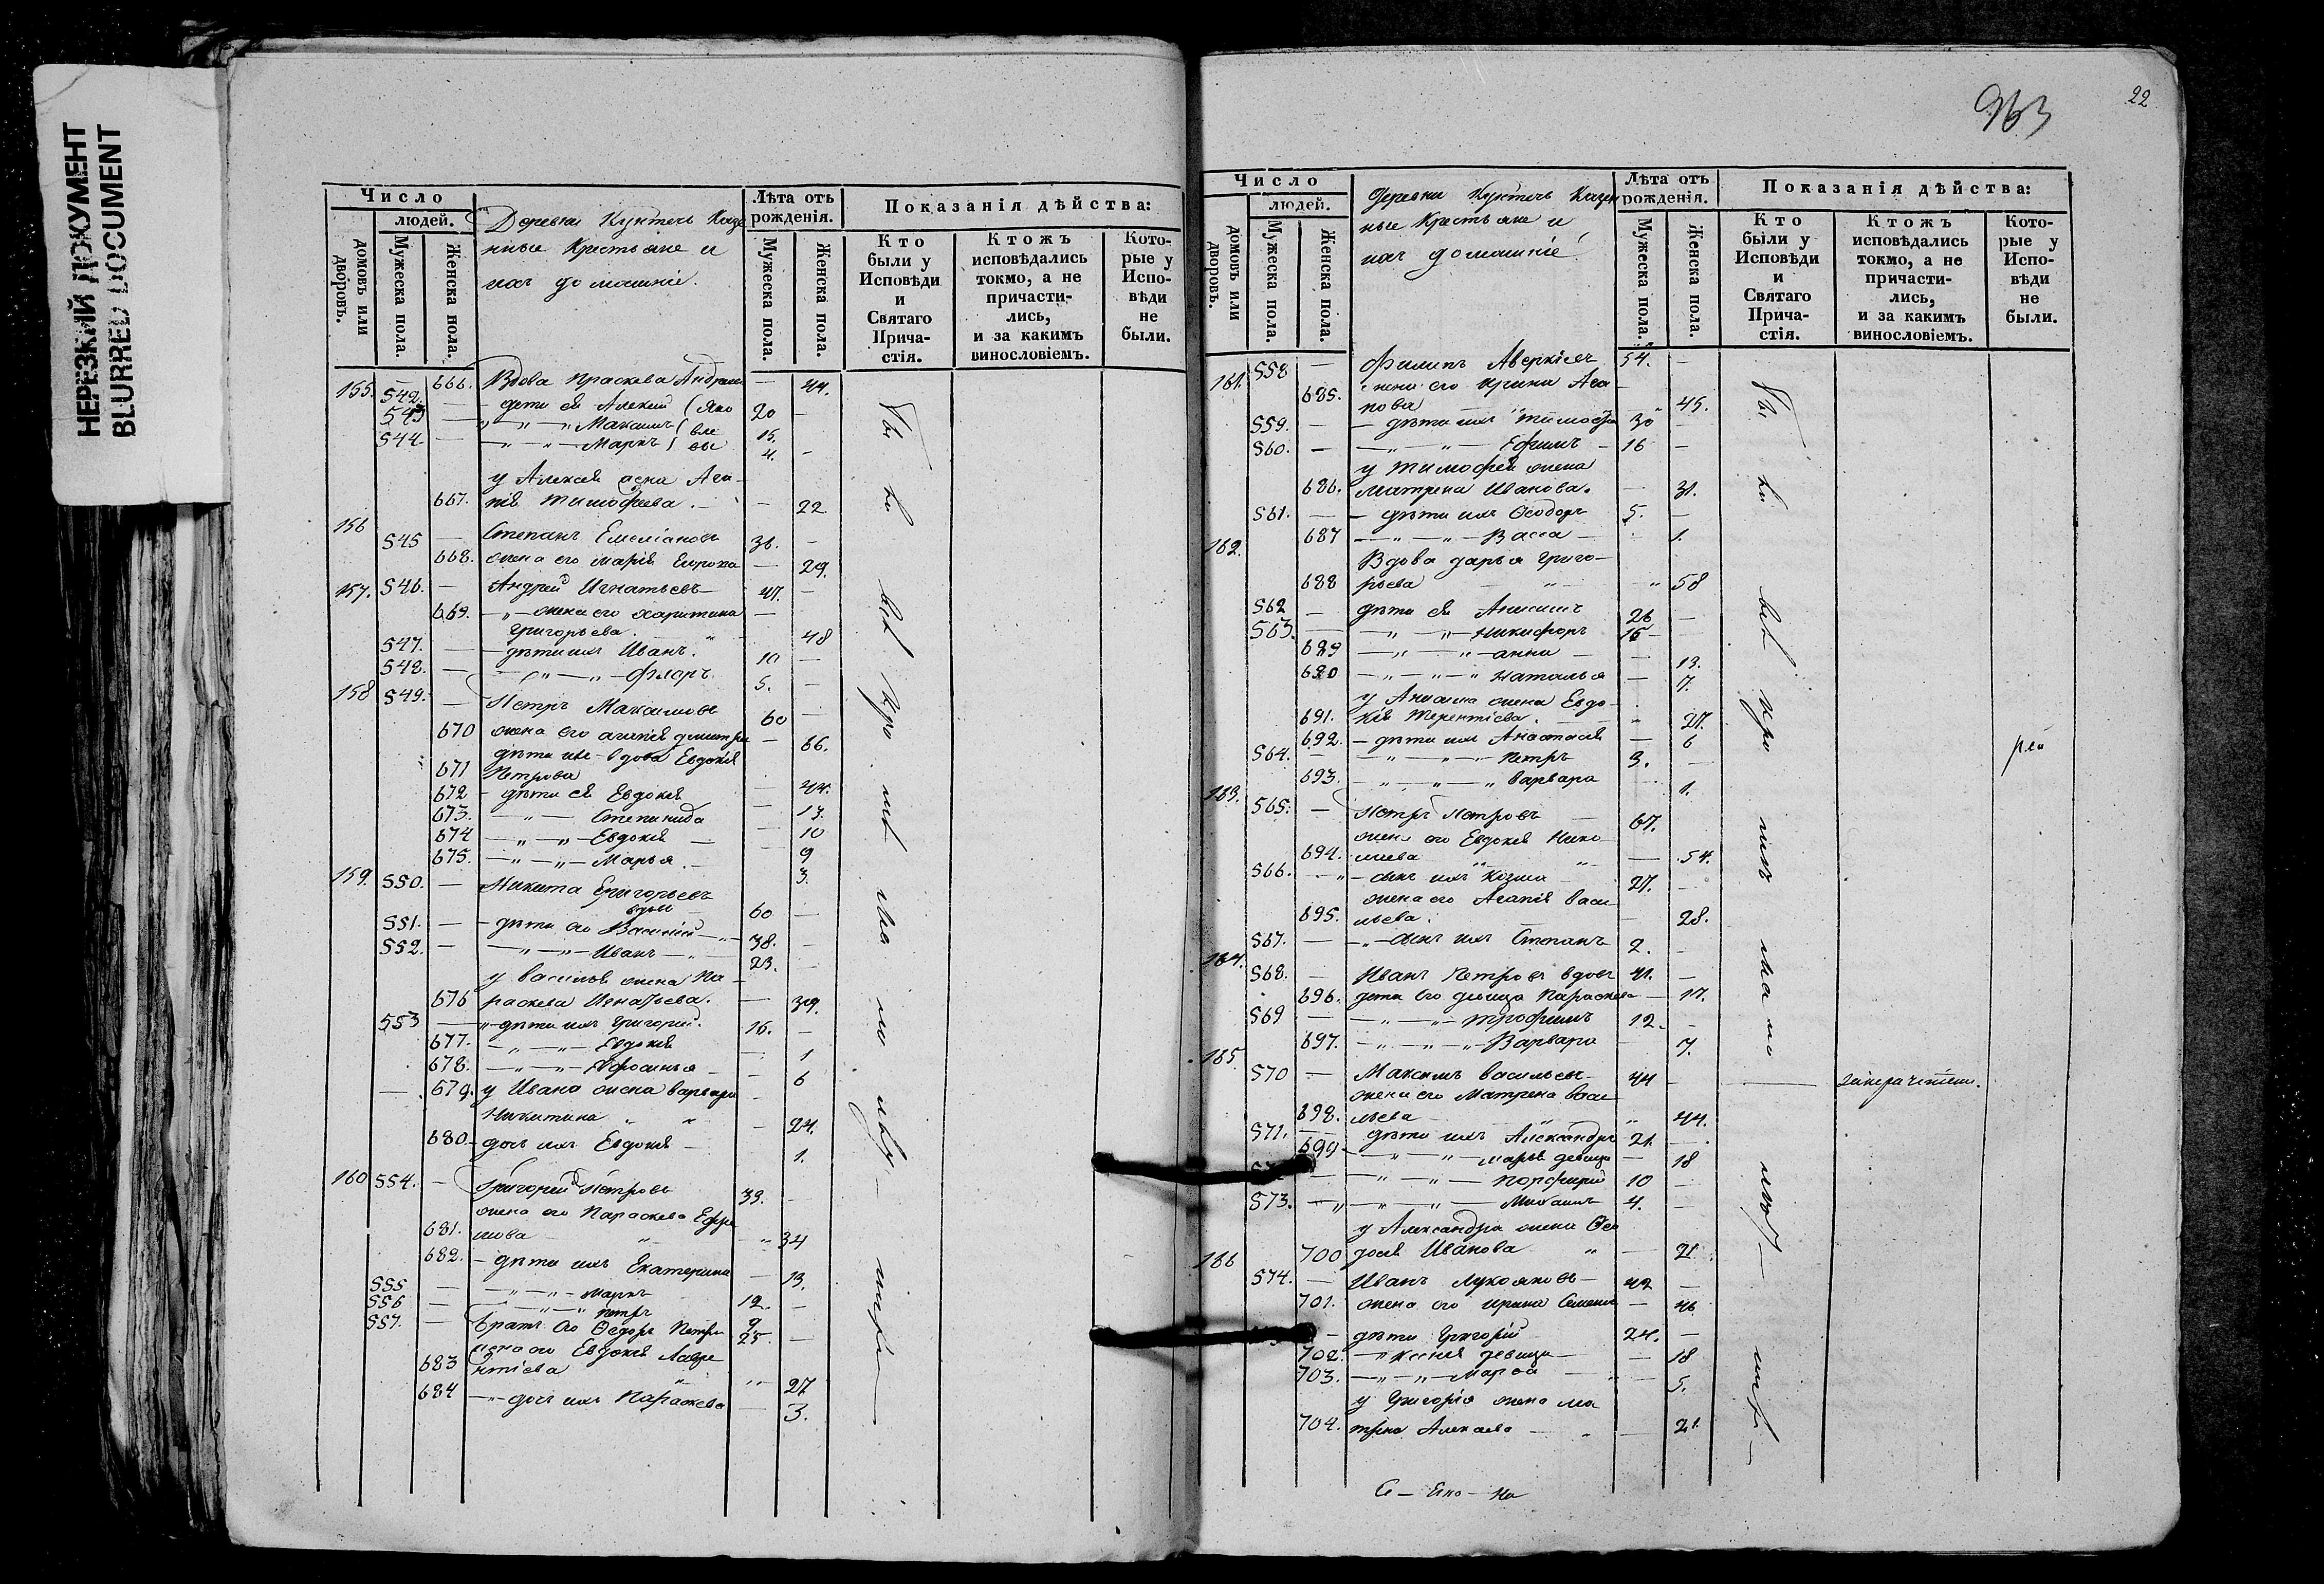 НЕРЕЗКИЙ ДОКУМЕНТ
BLURRED DOCUMENT
Число
людей.
домовъ или дворовъ.
Мужеска пола.
Женска пола.
Деревни Казен
ные Крестьяне и
ихъ домашніе.
Лѣта отъ рожденія.
Мужеска пола.
Женска пола.
Показанія дѣйства:
Кто были у Исповѣди и Святаго Прича-стія.
Ктожъ исповѣдались токмо, а не причасти-лись, и за какимъ винословіемъ.
Кото-рые у Испо-вѣди не были.
155. 666. Вдова Праскева — 44.
542. — дети ея Алексій 20 —
543 — „ — „ — Максимъ 15.
544 — „ — „ — Маркъ 4. —
у Алексея жена Ага-
667. пія Тимофеева. — — 22
156 545 — Степанъ Емеліановъ 36. —
668. жена его Марія — 29.
157. 546. — Андрей Игнатьевъ 47. —
669. — „ — жена его Харитина —
Григорьева. 48
547. — дѣти ихъ Иванъ. 10 —
548. — „ — „ — Флоръ 5. —
158 549. — Петръ Максимовъ 60 —
670 жена его Агапія — 66.
дѣти ихъ вдова Евдокія
671 Петрова — 44.
672 — дѣти ея Евдокія — 17.
673. — „ — Степанида — 10
674 — „ — „ — Евдокія — 9
675. — „ — „ — Марья — 3.
159. 550. — Никита Григорьевъ
вдовъ 60 —
551. — дѣти его Василій 38. —
552. — „ — „ — Иванъ 23. —
у Василья жена Па-
676 раскева Игнатьева. — 39.
553 — „ — дѣти ихъ Григорій. 16. —
677. — „ — „ — Евдокія — 1
678. — „ — „ — — 6
679. у Ивана жена Варвара
Никитина — 24.
680 — дочь ихъ Евдокія — 1.
160 554. — Григорій Петровъ 39. —
жена его Параскева Ефре
681. мова „ 34
682. — дѣти ихъ Екатерина — 13.
555 — „ — „ — Маркъ 12. —
556 — „ — „ — Петръ 9
557. — братъ его Ѳедоръ 25 —
жена его Евдокія Лавре
683 нтіева „ 27
684 — „ — дочь ихъ Параскева — 3.
963
22
Число
людей.
домовъ или дворовъ.
Мужеска пола.
Женска пола.
Деревни Казен
ные Крестьяне и
ихъ домашніе.
Лѣта отъ рожденія.
Мужеска пола.
Женска пола.
Показанія дѣйства:
Кто были у Исповѣди и Святаго Прича-стія.
Ктожъ исповѣдались токмо, а не причасти-лись, и за какимъ винословіемъ.
Кото-рые у Испо-вѣди не были.
161. 558 — Филипъ Аверкіевъ 54. —
жена его Ирина Ага
685. пова — 45.
559. — дѣти ихъ Тимофей 30 —
560. — „ „ — Ефимъ 16 —
у Тимофея жена
686. Матрена Иванова. — 31.
561. — дѣти ихъ Ѳеодоръ 5. —
687 — „ — „ — Васса — 1.
162. Вдова Дарья Григо-
688 рьева „ 58
562 — дѣти ея Анисимъ 26 —
563. — „ „ — Никифоръ 15 —
689 — „ — „ — Анна — 13.
690 — „ — „ — Наталья — 7.
у Анисима жена Евдо-
691. кія Терентіева. „ 27.
692. — дѣти ихъ Анастасія — 6
564. — „ — „ — Петръ 3. —
693. — „ — „ — Варвара — 1.
163. 565. — Петръ Петровъ 67.
жена его Евдокія Нико
694. лаева — 54.
566. — сынъ ихъ Козма 27. —
жена его Агапія Васи
695. льева. — 28.
567. — „ — сынъ ихъ Степанъ 2. —
164. 568. — Иванъ Петровъ вдовъ 41. —
696. дети его девица Параскева — 17.
569 — „ — „ — Трофимъ 12. —
697. — „ — „ — Варвара 7.
165 570 — Максимъ Васильевъ 44 —
жена его Матрена Васи
698. льева „ 44.
571. — дѣти ихъ Александръ 21. —
699 — „ — „ — Марья девица — 18
— „ — „ — Порфирій 10 —
573. — „ — „ — Михаилъ 4. —
у Александра жена Ѳео
700 досія Иванова „ — 21.
166 574. — Иванъ Лукояновъ 42 —
701. жена его Ирина Семенова — 46
— дѣти Григорій 24. —
702. — „ Ксенія девица — 18
703. — „ — „ — Марѳа — 5.
у Григорія жена Ма
704. трена Алексеева — 21.